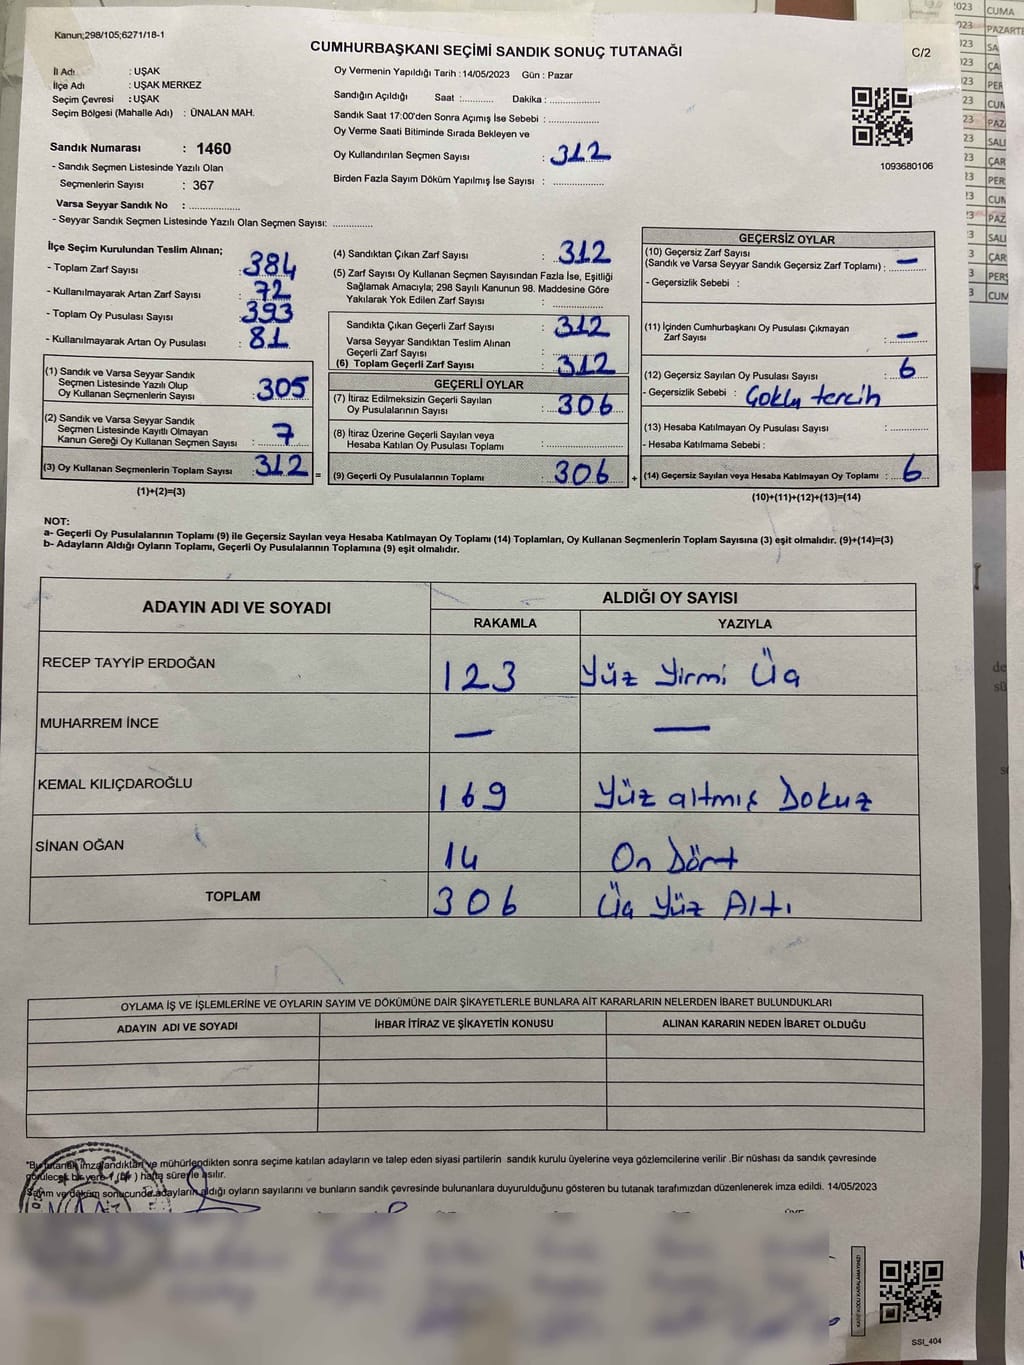 Kanun;298/105;6271/18-1
CUMHURBAŞKANI SEÇİMİ SANDIK SONUÇ TUTANAĞI
C/2
İl Adı : UŞAK
İlçe Adı : UŞAK MERKEZ
Seçim Çevresi : UŞAK
Seçim Bölgesi (Mahalle Adı) : ÜNALAN MAH.
Sandık Numarası : 1460
- Sandık Seçmen Listesinde Yazılı Olan
Seçmenlerin Sayısı : 367
Varsa Seyyar Sandık No : ..................
- Seyyar Sandık Seçmen Listesinde Yazılı Olan Seçmen Sayısı: ..............
Oy Vermenin Yapıldığı Tarih : 14/05/2023 Gün : Pazar
Sandığın Açıldığı Saat :............ Dakika : ..................
Sandık Saat 17:00'den Sonra Açımış İse Sebebi : ..................
Oy Verme Saati Bitiminde Sırada Bekleyen ve
Oy Kullandırılan Seçmen Sayısı : 312
Birden Fazla Sayım Döküm Yapılmış İse Sayısı : ..................
1093680106
İlçe Seçim Kurulundan Teslim Alınan;
- Toplam Zarf Sayısı : 384
- Kullanılmayarak Artan Zarf Sayısı : 72
- Toplam Oy Pusulası Sayısı : 393
- Kullanılmayarak Artan Oy Pusulası : 81
(1) Sandık ve Varsa Seyyar Sandık
Seçmen Listesinde Yazılı Olup
Oy Kullanan Seçmenlerin Sayısı : 305
(2) Sandık ve Varsa Seyyar Sandık
Seçmen Listesinde Kayıtlı Olmayan
Kanun Gereği Oy Kullanan Seçmen Sayısı : 7
(3) Oy Kullanan Seçmenlerin Toplam Sayısı : 312 =
(1)+(2)=(3)
(4) Sandıktan Çıkan Zarf Sayısı : 312
(5) Zarf Sayısı Oy Kullanan Seçmen Sayısından Fazla İse, Eşitliği
Sağlamak Amacıyla; 298 Sayılı Kanunun 98. Maddesine Göre
Yakılarak Yok Edilen Zarf Sayısı : ..................
Sandıkta Çıkan Geçerli Zarf Sayısı : 312
Varsa Seyyar Sandıktan Teslim Alınan
Geçerli Zarf Sayısı :
(6) Toplam Geçerli Zarf Sayısı : 312
GEÇERLİ OYLAR
(7) İtiraz Edilmeksizin Geçerli Sayılan
Oy Pusulalarının Sayısı : 306
(8) İtiraz Üzerine Geçerli Sayılan veya
Hesaba Katılan Oy Pusulası Toplamı : ..................
(9) Geçerli Oy Pusulalarının Toplamı : 306 +
GEÇERSİZ OYLAR
(10) Geçersiz Zarf Sayısı
(Sandık ve Varsa Seyyar Sandık Geçersiz Zarf Toplamı) : —
- Geçersizlik Sebebi :
(11) İçinden Cumhurbaşkanı Oy Pusulası Çıkmayan
Zarf Sayısı : —
(12) Geçersiz Sayılan Oy Pusulası Sayısı : 6
- Geçersizlik Sebebi : Çoklu tercih
(13) Hesaba Katılmayan Oy Pusulası Sayısı : ............
- Hesaba Katılmama Sebebi :
(14) Geçersiz Sayılan veya Hesaba Katılmayan Oy Toplamı : 6
(10)+(11)+(12)+(13)=(14)
NOT:
a- Geçerli Oy Pusulalarının Toplamı (9) ile Geçersiz Sayılan veya Hesaba Katılmayan Oy Toplamı (14) Toplamları, Oy Kullanan Seçmenlerin Toplam Sayısına (3) eşit olmalıdır. (9)+(14)=(3)
b- Adayların Aldığı Oyların Toplamı, Geçerli Oy Pusulalarının Toplamına (9) eşit olmalıdır.
ADAYIN ADI VE SOYADI
ALDIĞI OY SAYISI
RAKAMLA YAZIYLA
RECEP TAYYİP ERDOĞAN 123 Yüz Yirmi Üç
MUHARREM İNCE — —
KEMAL KILIÇDAROĞLU 169 Yüz altmış Dokuz
SİNAN OĞAN 14 On Dört
TOPLAM 306 Üç Yüz Altı
OYLAMA İŞ VE İŞLEMLERİNE VE OYLARIN SAYIM VE DÖKÜMÜNE DAİR ŞİKAYETLERLE BUNLARA AİT KARARLARIN NELERDEN İBARET BULUNDUKLARI
ADAYIN ADI VE SOYADI İHBAR İTİRAZ VE ŞİKAYETİN KONUSU ALINAN KARARIN NEDEN İBARET OLDUĞU
*Bu tutanak imzalandıktan ve mühürlendikten sonra seçime katılan adayların ve talep eden siyasi partilerin sandık kurulu üyelerine veya gözlemcilerine verilir .Bir nüshası da sandık çevresinde
görülecek bir yere 1 (bir) hafta süreyle asılır.
Sayım ve döküm sonucunda adayların aldığı oyların sayılarını ve bunların sandık çevresinde bulunanlara duyurulduğunu gösteren bu tutanak tarafımızdan düzenlenerek imza edildi. 14/05/2023
T.C.
KARE KODU KARALAMAYINIZ!
SSI_404
CUMA
PAZARTE